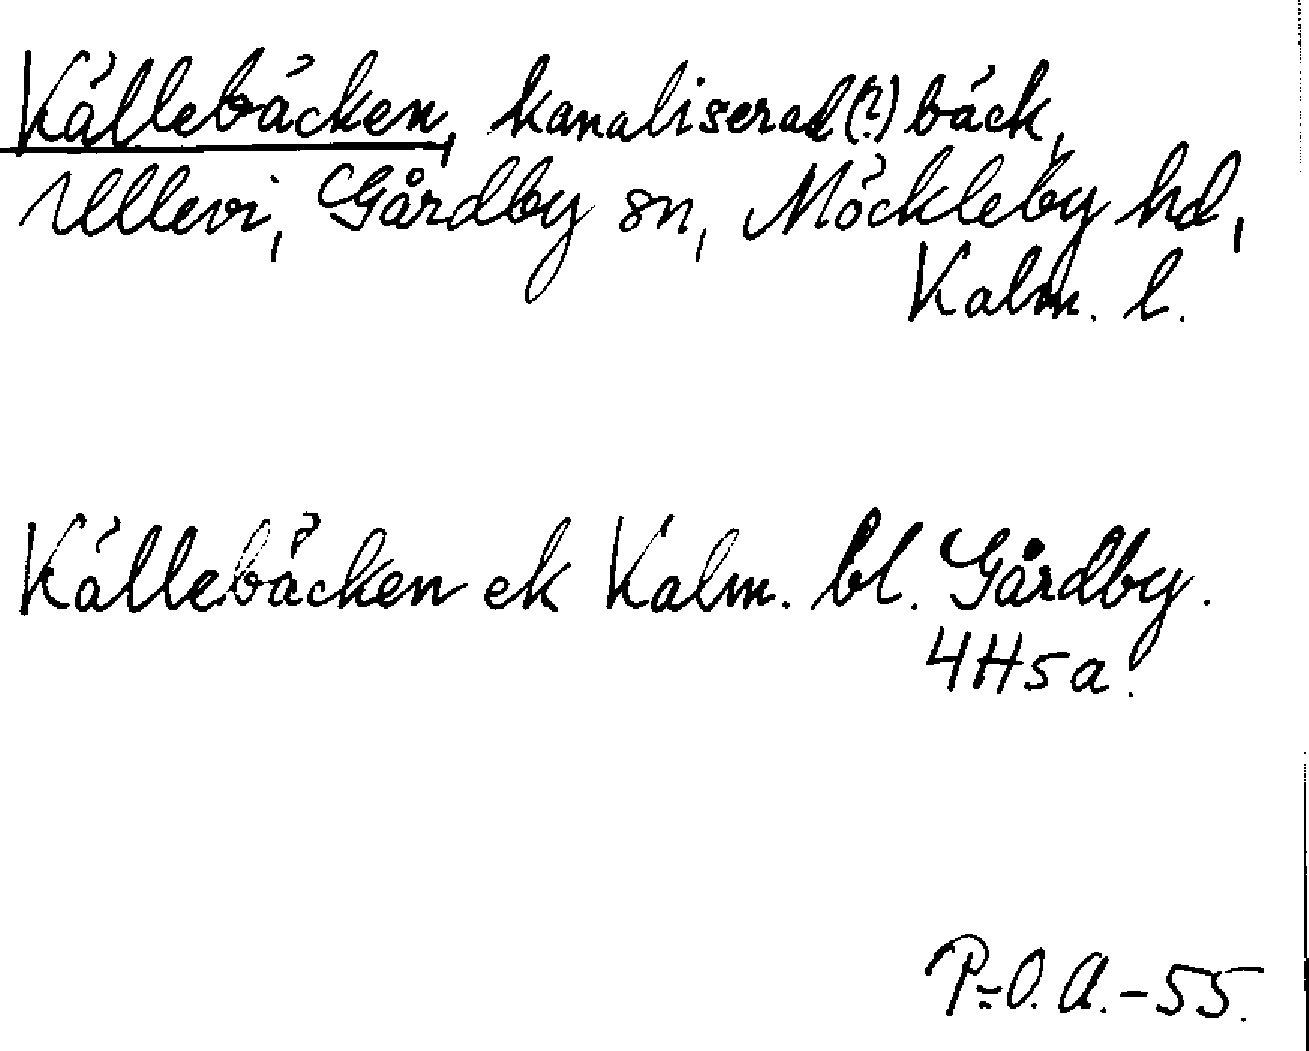 Källebäcken, kanaliserad(?) bäck,
Ullevi, Gårdby sn, Möckleby hd,
Kalm. l.
Källebäcken ek Kalm. bl. Gårdby.
4H5a.
P-O. A.-55.